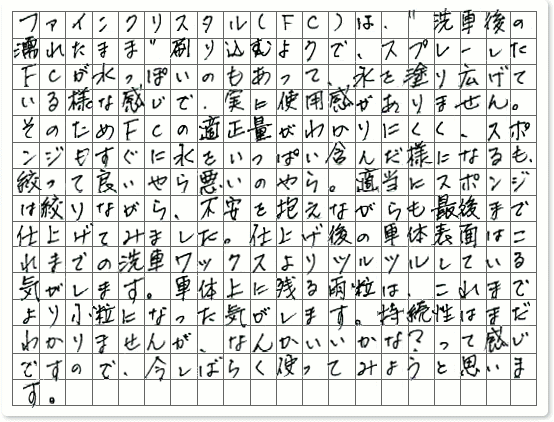 ファインクリスタル(FC)は、"洗車後の
濡れたまま"刷り込むようで、スプレーした
FCが水っぽいのもあって、水を塗り広げて
いる様な感じで、実に使用感がありません。
そのためFCの適正量がわかりにくく、スポ
ンジもすぐに水をいっぱい含んだ様になるも、
絞って良いやら悪いのやら。適当にスポンジ
は絞りながら、不安を抱えながらも最後まで
仕上げてみました。仕上げ後の車体表面はこ
れまでの洗車ワックスよりツルツルしている
気がします。車体上に残る雨粒は、これまで
より小粒になった気がします。持続性はまだ
わかりませんが、なんかいいかな?って感じ
ですので、今しばらく使ってみようと思いま
す。